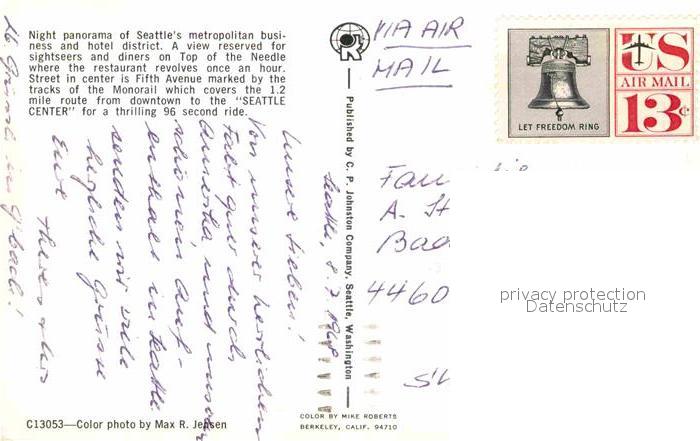 Night panorama of Seattle's metropolitan busi-
ness and hotel district. A view reserved for
sightseers and diners on Top of the Needle
where the restaurant revolves once an hour.
Street in center is Fifth Avenue marked by the
tracks of the Monorail which covers the 1.2
mile route from downtown to the "SEATTLE
CENTER" for a thrilling 96 second ride.
Seattle, 2.7.1968
Unsere Lieben!
Von unserer herrlichen
Fahrt quer durch
Amerika und unserem
schönen Auf-
enthalt in Seattle
senden wir viele
herzliche Grüsse
Eure
C13053—Color photo by Max R. Jensen
Published by C. P. Johnston Company, Seattle, Washington
COLOR BY MIKE ROBERTS
BERKELEY, CALIF. 94710
VIA AIR
MAIL
LET FREEDOM RING
US
AIR MAIL
13c
Fam
A. St
Bad
4460
privacy protection
Datenschutz